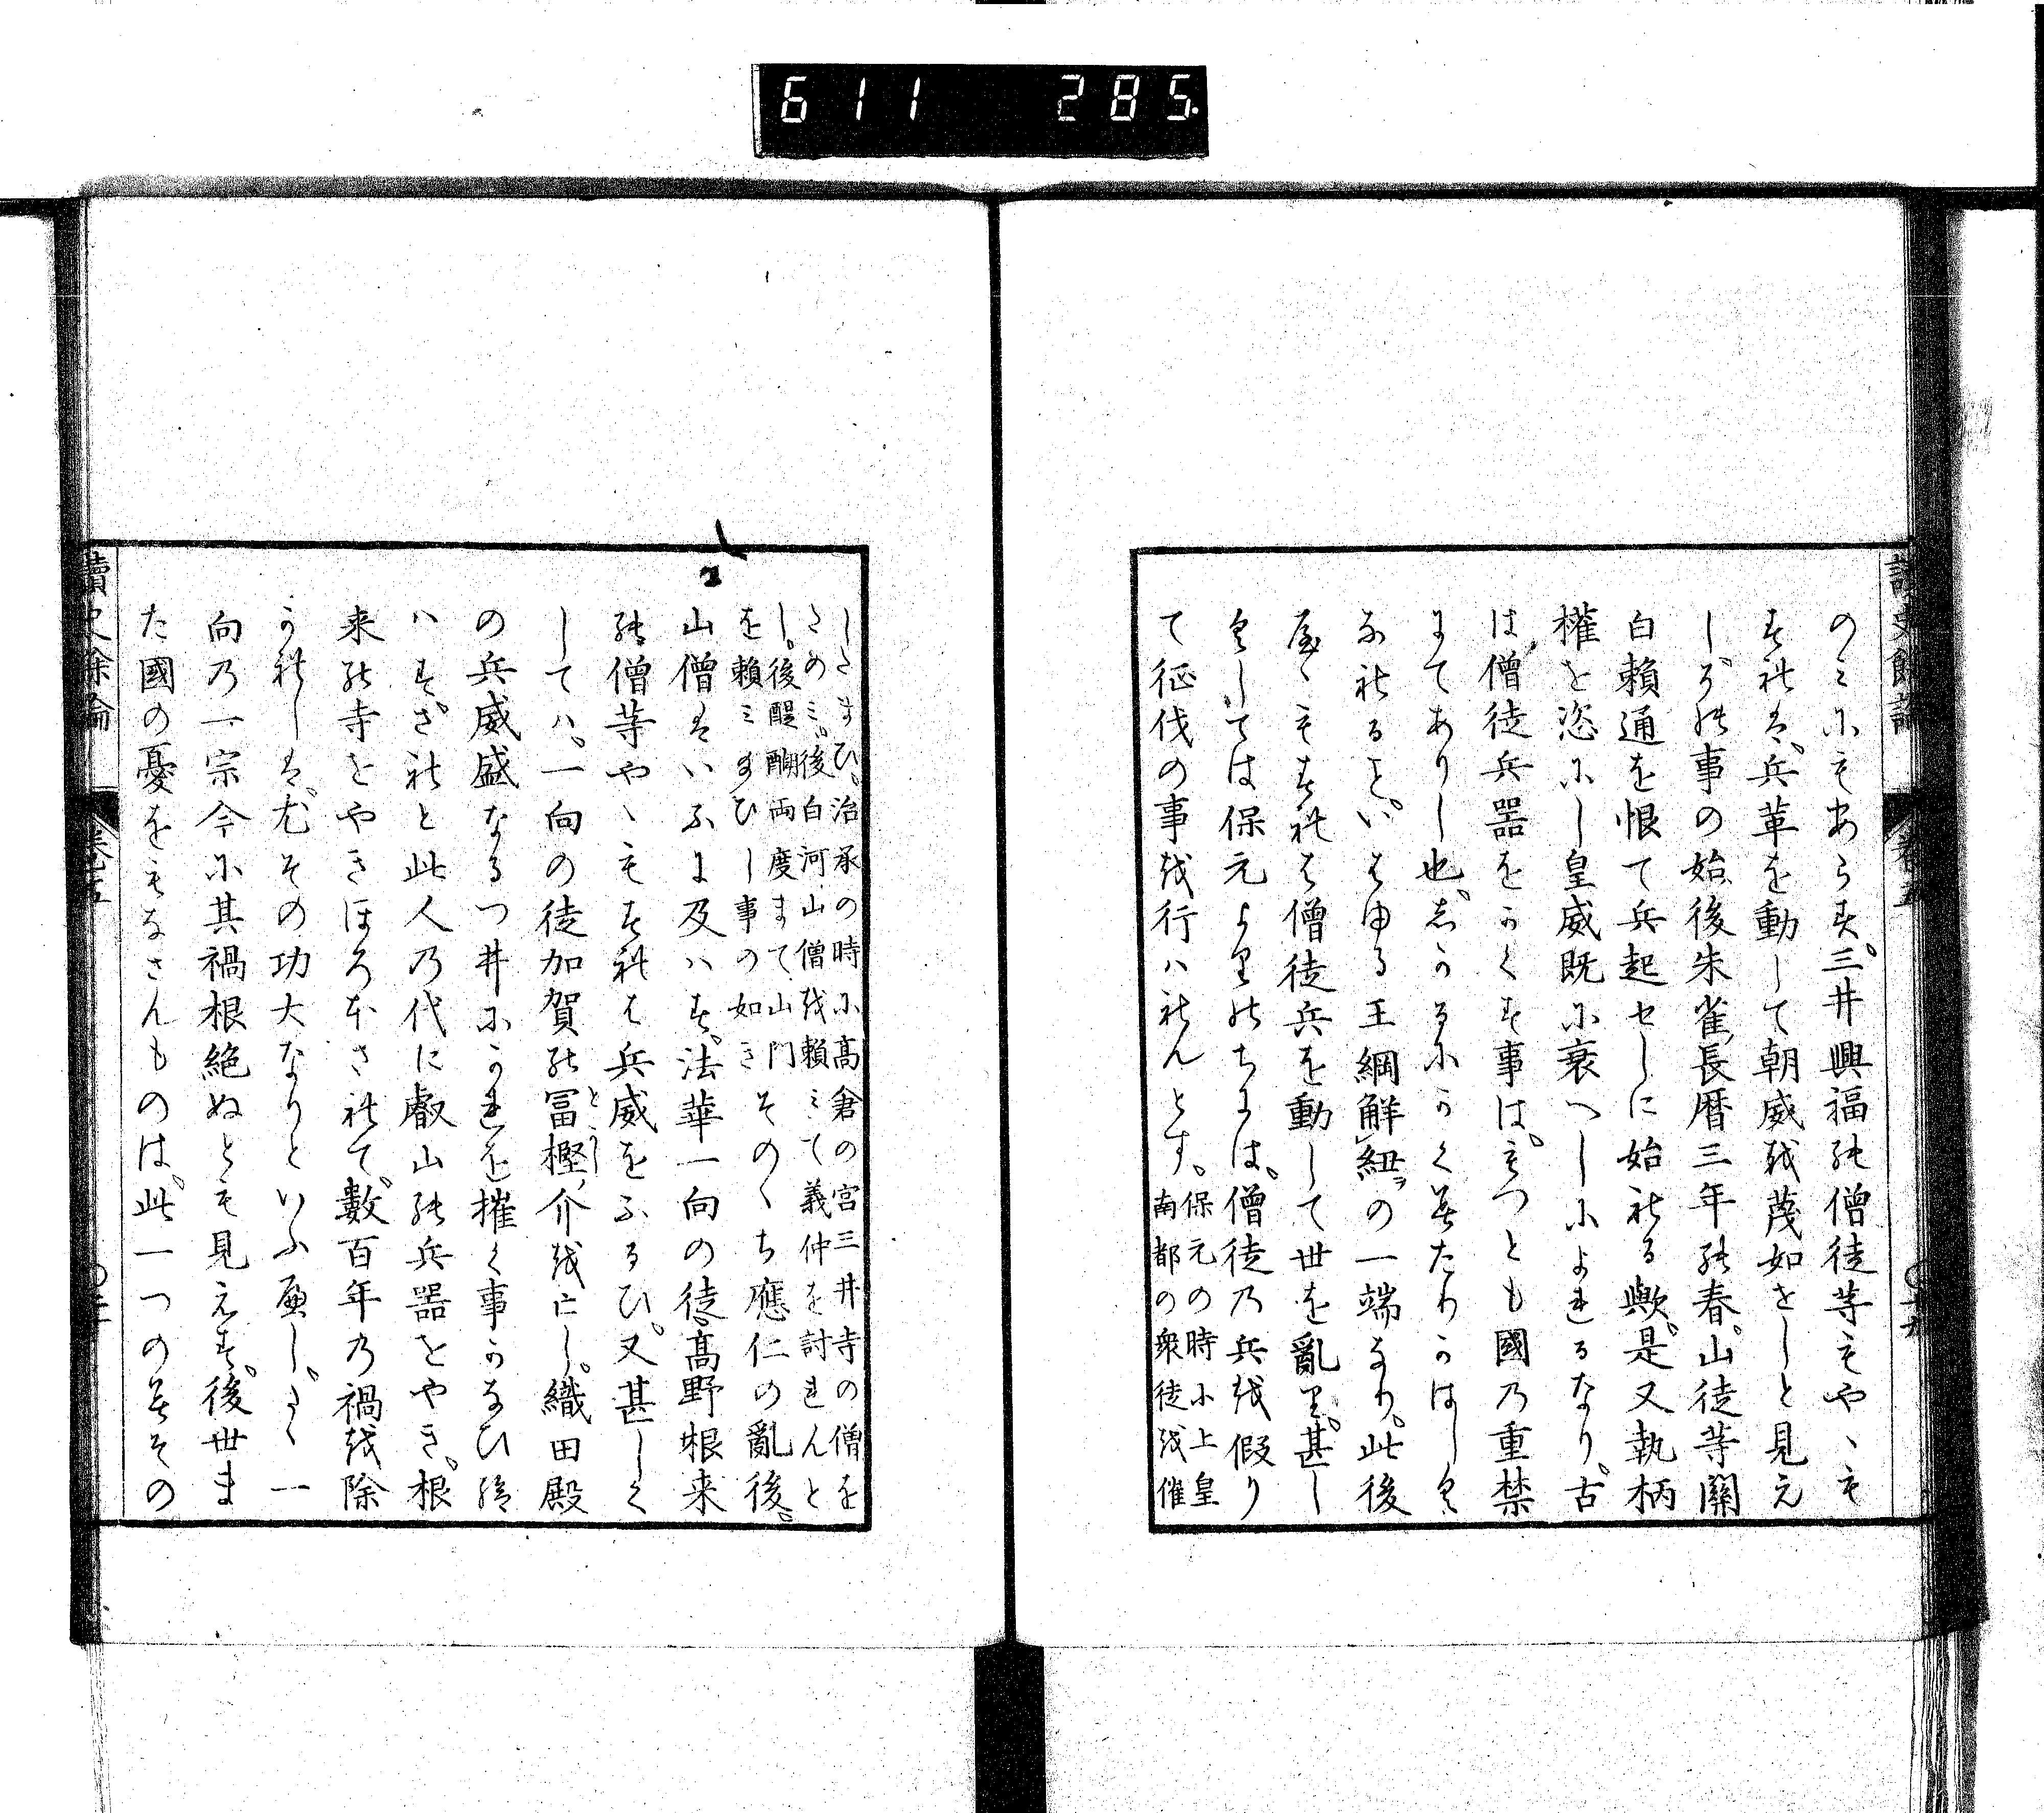 611 285.
讀史餘論
巻五
のミにもあらす。三井興福の僧徒等もやゝも
すれは、兵革を動して朝威を蔑如せしと見え
しか。此事の始、後朱雀、長暦三年の春。山徒等關
白頼通を恨て兵起セしに始れる歟。是又執柄
権を恣にし皇威既に衰へしによれるなり。古
は、僧徒兵器をかくす事は。もつとも國乃重禁
にてありし也。しかるにかく甚たりかはしく
なれるは、いはゆる王綱解紐の一端なり。此後
屡〻もすれは僧徒兵を動して世を亂り。甚し
くしては保元よりのちには。僧徒乃兵を假り
て征伐の事を行ハれんとす。
保元の時に上皇
南都の衆徒を催
したまひ、治承の時に高倉の宮三井寺の僧を
たのミ、後白河山僧を頼ミて義仲を討れんと
し。後醍醐両度まて山門
を頼ミ給ひし事の如き
そのゝち應仁の亂後。
山僧はいふに及ハす。法華一向の徒、高野根来
の僧等やゝもすれは兵威をふるひ。又甚しく
してハ。一向の徒加賀の冨樫介を亡し。織田殿
の兵威盛なるつ井にこれを摧く事かなひ給
ハす。されと此人乃代に叡山の兵器をやき。根
来の寺をやきほろほされて。數百年乃禍を除
かれしは、尤その功大なりといふ可し。たゝ一
向乃一宗今に其禍根絶ぬとも見えす。後世ま
た國の憂をもなさんものは。此一つの甚その
讀史餘論
巻五